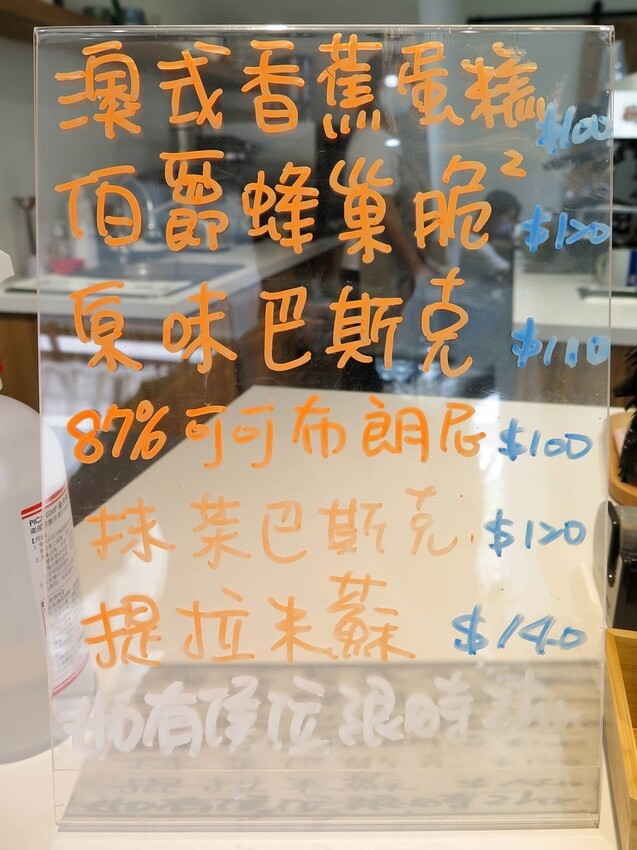 澳式香蕉蛋糕 $100
伯爵蜂巢脆² $120
原味巴斯克 $110
87%可可布朗尼 $100
抹茶巴斯克 $120
提拉米蘇 $140
如有候位限時